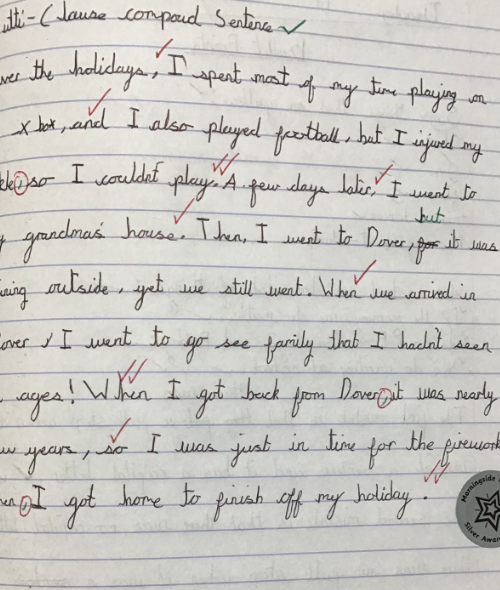 ulti-Clause compoud Sentence
ver the holidays, I spent most of my time playing on
x box, and I also played football, but I injured my
kle, so I couldn't play. A few days later, I went to
but
y grandma's house. Then, I went to Dover, for it was
ining outside, yet we still went. When we arrived in
over, I went to go see family that I hadn't seen
ages! When I got back from Dover, it was nearly
ew years, so I was just in time for the firework
hen, I got home to finish off my holiday.
Morningside
Silver Awa